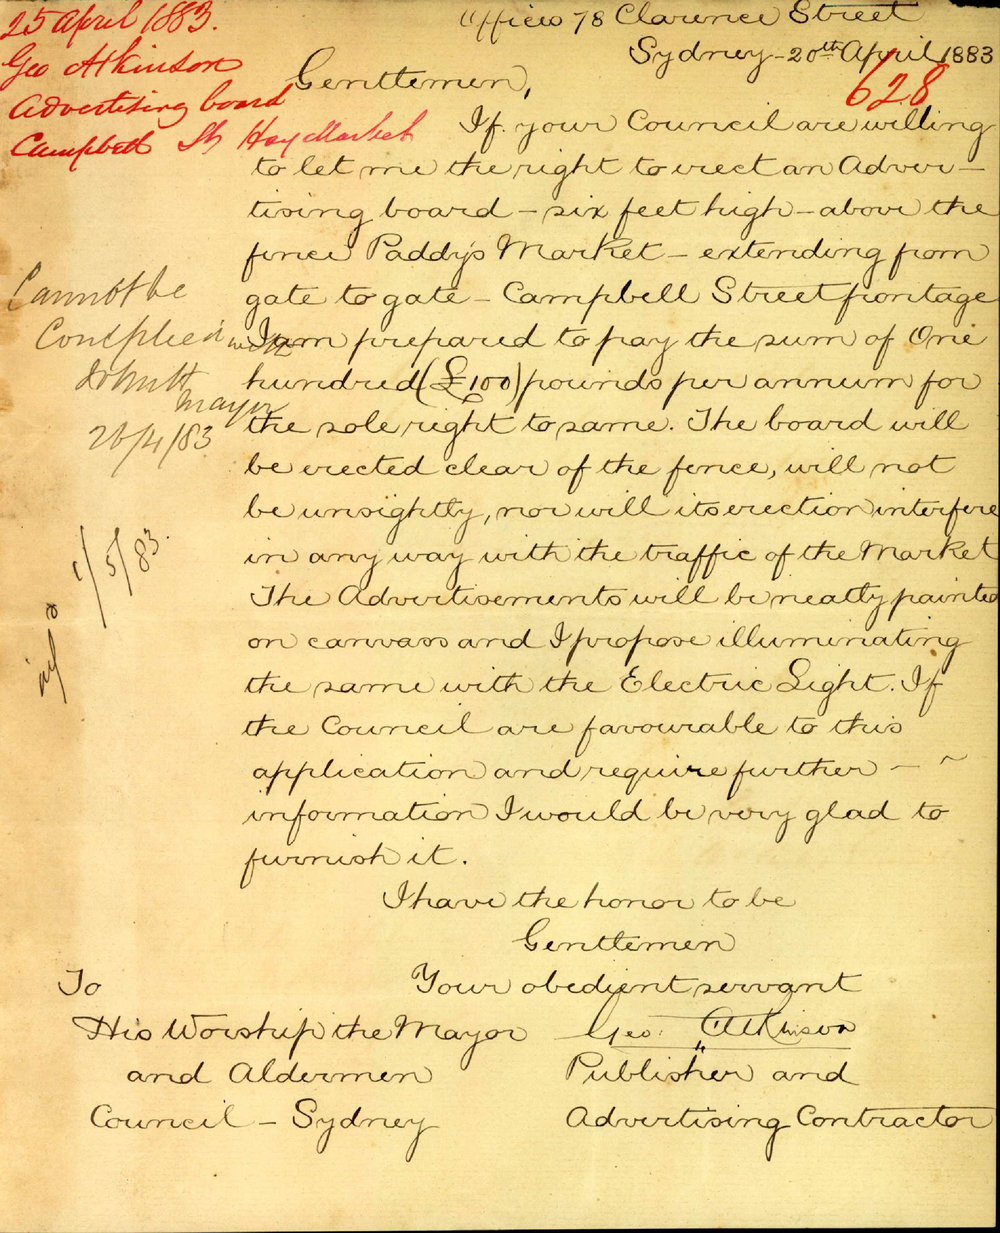 25 April 1883.
Geo Atkinson
Advertising board
Campbell St Hay Market
Offices 78 Clarence Street
Sydney - 20th April 1883
628
Gentlemen,
If your Council are willing
to let me the right to erect an Adver-
tising board - six feet high - above the
fence Paddy's Market - extending from
gate to gate - Campbell Street frontage
I am prepared to pay the sum of One
hundred (£100) pounds per annum for
the sole right to same. The board will
be erected clear of the fence, will not
be unsightly, nor will its erection interfere
in any way with the traffic of the Market
The Advertisements will be neatly painted
on canvass and I propose illuminating
the same with the Electric Light. If
the Council are favourable to this
application and require further - ~
information I would be very glad to
furnish it.
I have the honor to be
Gentlemen
Your obedient servant
Geo: Atkinson
Publisher and
Advertising Contractor
To
His Worship the Mayor
and Aldermen
Council - Sydney
Cannot be
Complied with
Mayor
26/4/83
1/5/83.